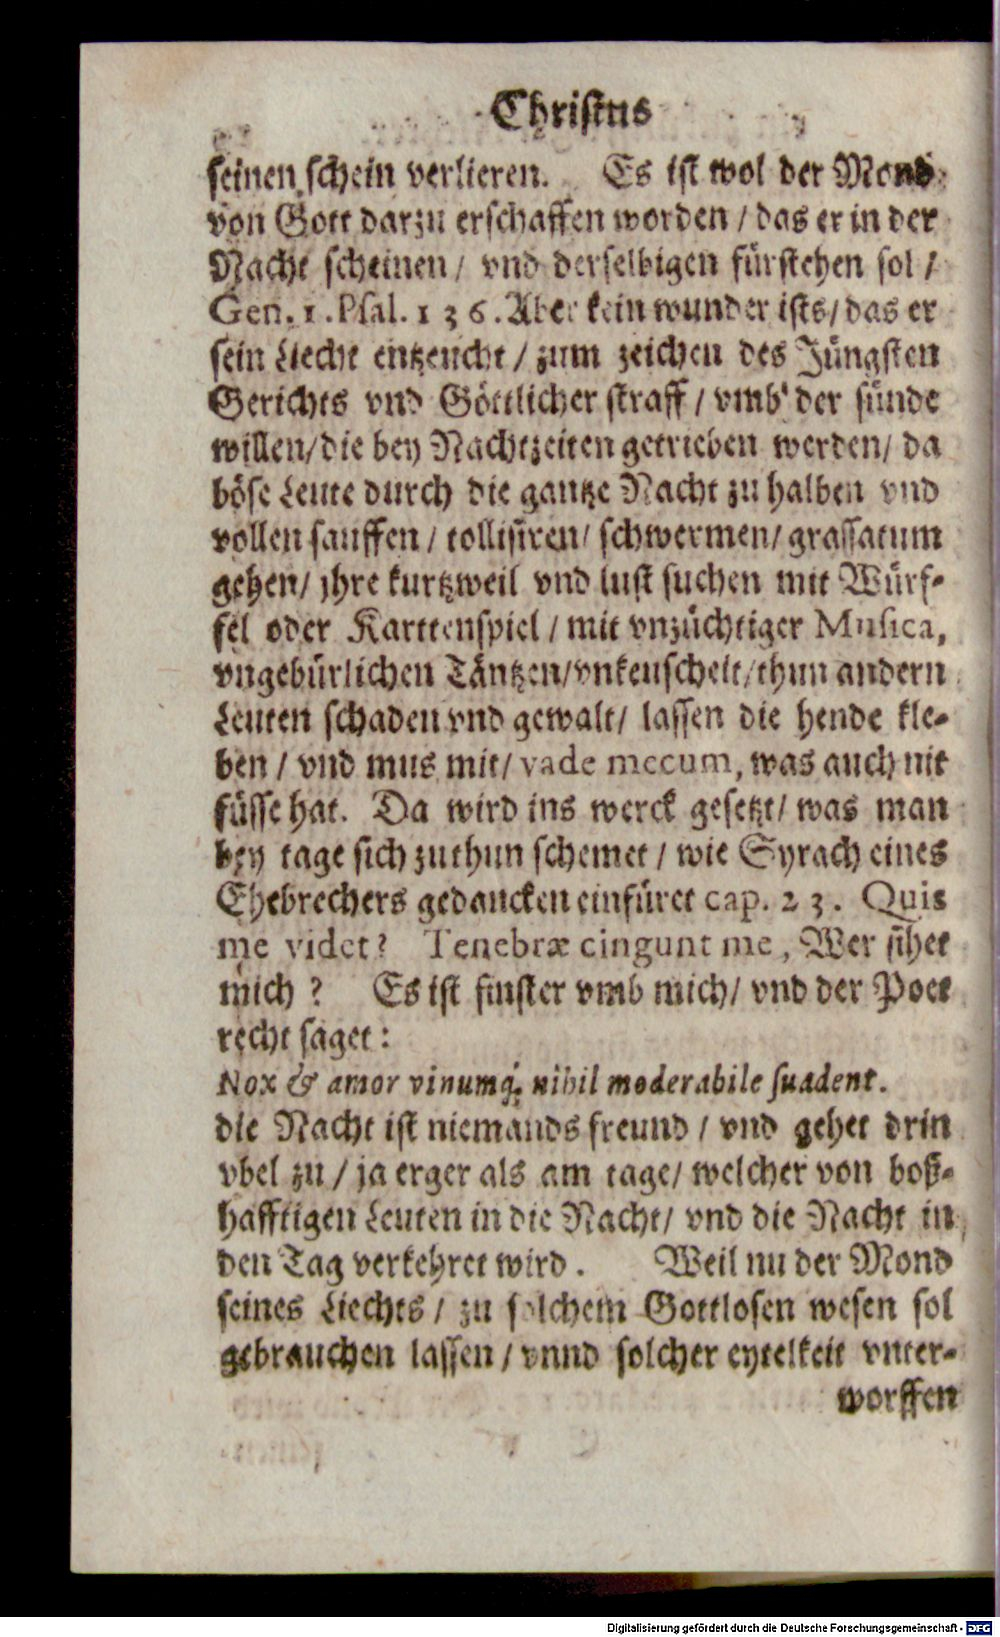 Christus
seinen schein verlieren. Es ist wol der Mond
von Gott darzu erschaffen worden / das er in der
Nacht scheinen / vnd derselbigen fürstehen sol /
Gen. 1. Psal. 136. Aber kein wunder ists / das er
sein Liecht entzeucht / zum zeichen des Jüngsten
Gerichts vnd Göttlicher straff / vmb der sünde
willen / die bey Nachtzeiten getrieben werden / da
böse Leute durch die gantze Nacht zu halben vnd
vollen sauffen / tollisiren / schwermen / grassatum
gehen / jhre kurtzweil vnd lust suchen mit Würf-
fel oder Karttenspiel / mit vnzüchtiger Musica,
vngebürlichen Täntzen / vnkeuscheit / thun andern
Leuten schaden vnd gewalt / lassen die hende kle-
ben / vnd mus mit / vade mecum, was auch nit
füsse hat. Da wird ins werck gesetzt / was man
bey tage sich zuthun schemet / wie Syrach eines
Ehebrechers gedancken einfüret cap. 23. Quis
me videt? Tenebræ cingunt me, Wer sihet
mich ? Es ist finster vmb mich / vnd der Poet
recht saget :
Nox & amor vinumq; nihil moderabile suadent.
die Nacht ist niemands freund / vnd gehet drin
vbel zu / ja erger als am tage / welcher von boß-
hafftigen Leuten in die Nacht / vnd die Nacht in
den Tag verkehret wird . Weil nu der Mond
seines Liechts / zu solchem Gottlosen wesen sol
gebrauchen lassen / vnnd solcher eytelkeit vnter-
worffen
Digitalisierung gefördert durch die Deutsche Forschungsgemeinschaft - DFG